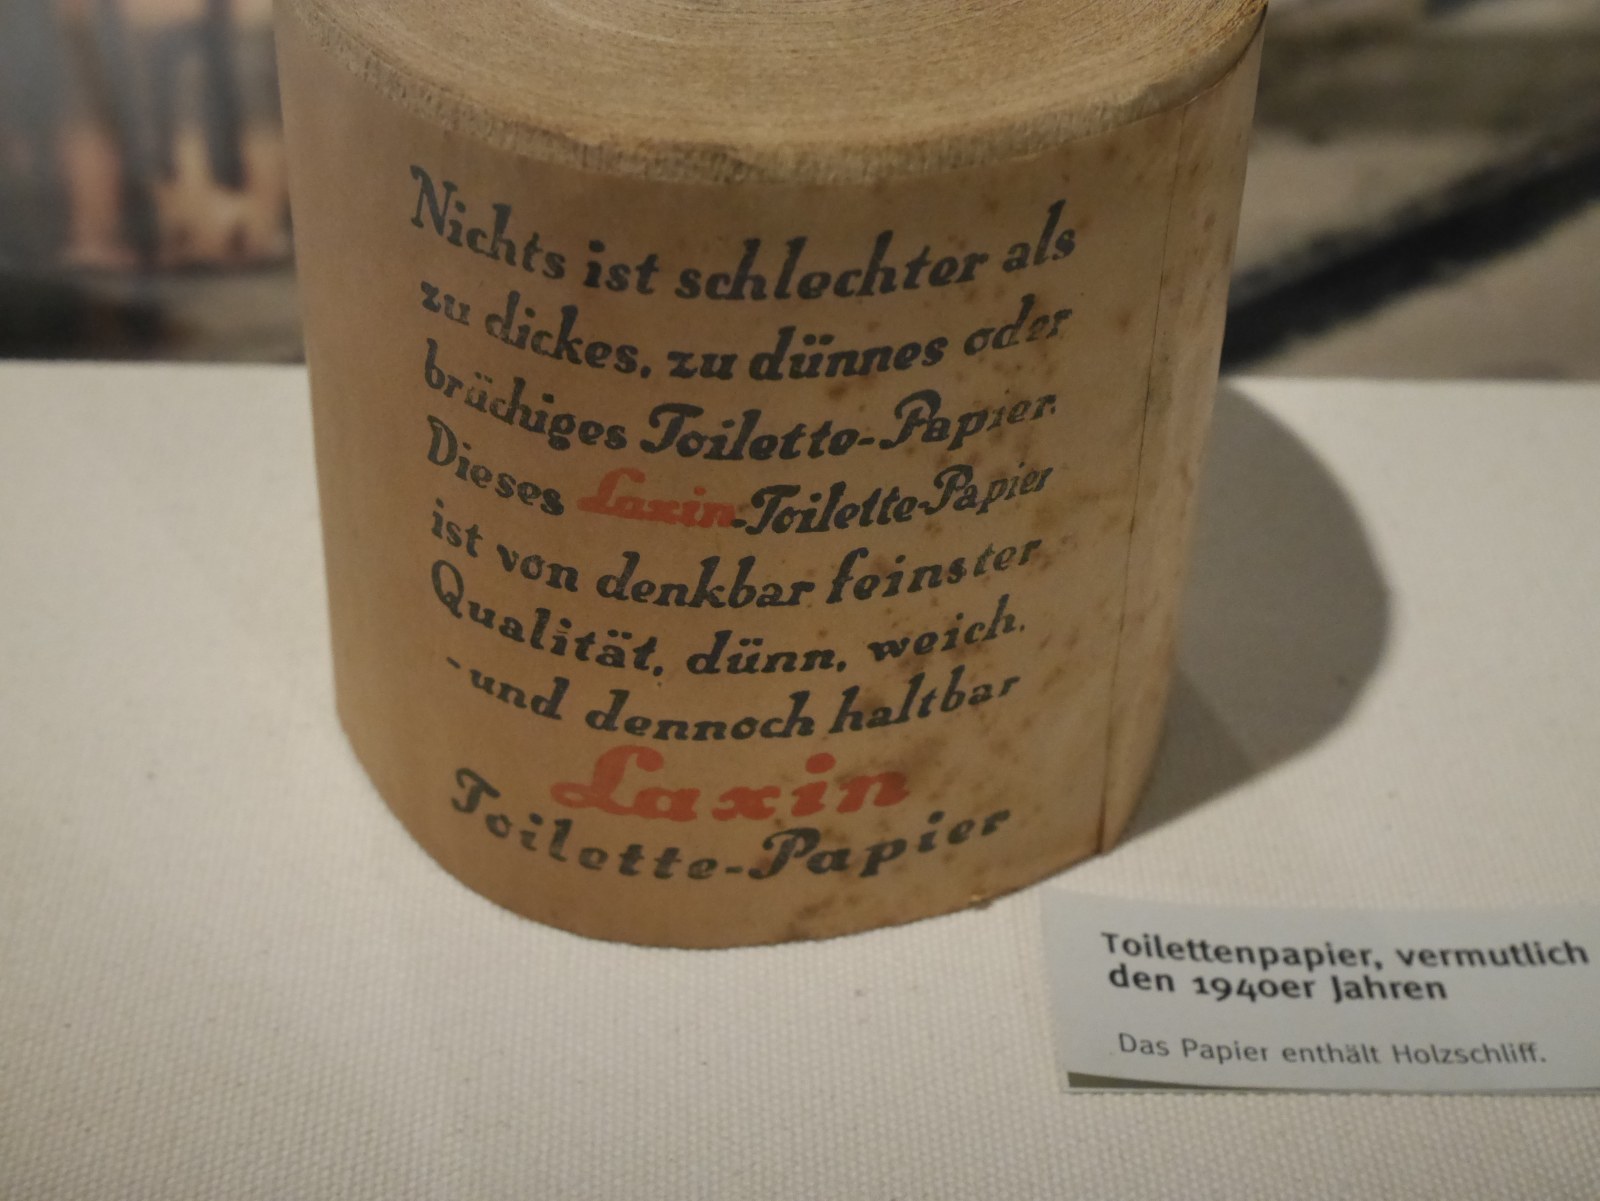 Nichts ist schlechter als
zu dickes, zu dünnes oder
brüchiges Toilette-Papier.
Dieses Laxin-Toilette-Papier
ist von denkbar feinster
Qualität, dünn, weich,
- und dennoch haltbar
Laxin
Toilette-Papier
Toilettenpapier, vermutlich
den 1940er Jahren
Das Papier enthält Holzschliff.